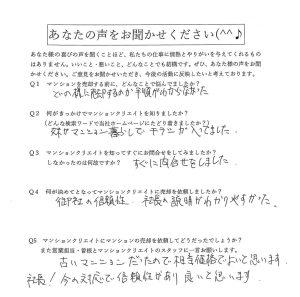 あなたの声をお聞かせください(^^♪
あなた様の喜びの声を聞くことほど、私たちの仕事に情熱とやりがいを与えてくれるもの
はありません。いいこと・悪いこと、どんなことでも結構です。ぜひ、あなた様の声をお聞
かせください。ご意見をお聞かせいただき、今後の活動に反映したいと考えております。
Q1 マンションを売却する前に、どんなことで悩んでましたか?
どの様に売却するのか手順がわからなかった
Q2 何がきっかけでマンションクリエイトを知りましたか?
(どんな検索ワードで当社ホームページにたどり着きましたか?)
マンション暮らしで チラシが入ってました。
Q3 マンションクリエイトを知ってすぐにお問合せをしてみましたか?
しなかったのは何故ですか?
すぐに問合せをしました
Q4 何が決めてとなってマンションクリエイトに売却を依頼しましたか?
御社の信頼性。社長の説明がわかりやすかった。
Q5 マンションクリエイトにマンションの売却を依頼してどうだったでしょうか?
また営業担当・曽根とマンションクリエイトのスタッフに一言お願いします。
古いマンションだったので相当価格でよいと思います。
社長!今の対応で信頼性があり良いと思います